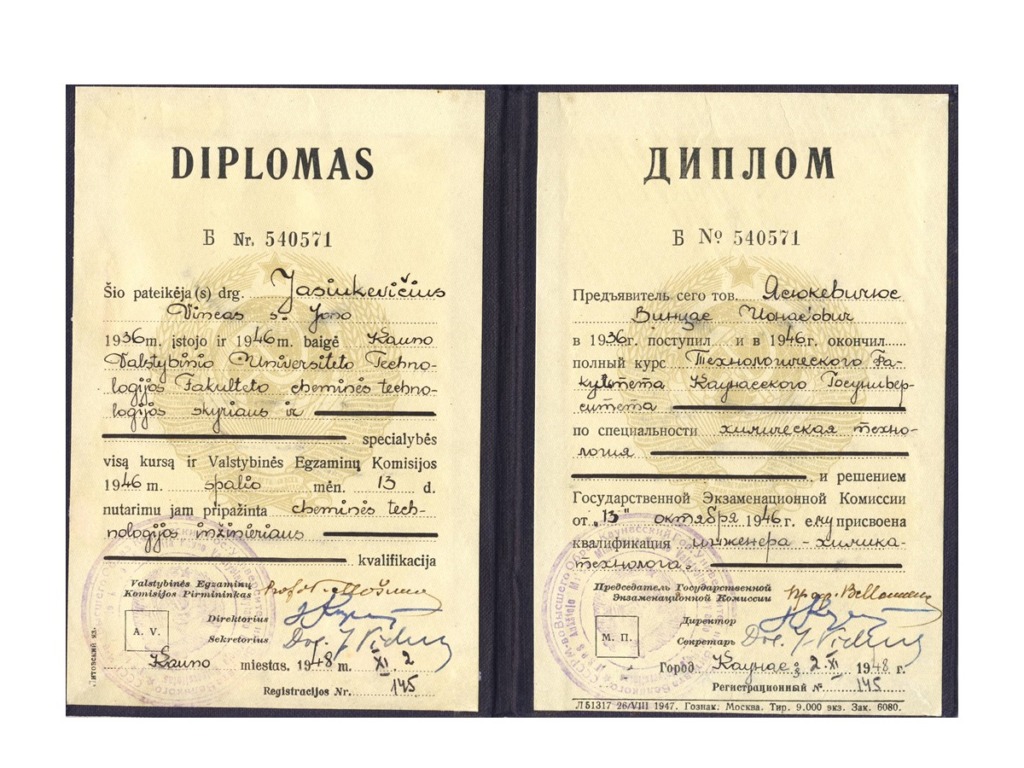 DIPLOMAS
Б Nr. 540571
Šio pateikėja(s) drg. Jasiukevičius
Vincas s. Jono
1936 m. įstojo ir 1946 m. baigė Kauno
Valstybinio Universiteto Techno-
logijos Fakulteto cheminės techno-
logijos skyriaus ir
specialybės
visą kursą ir Valstybinės Egzaminų Komisijos
1946 m. spalio mėn. 13 d.
nutarimu jam pripažinta cheminės tech-
nologijos inžinieriaus
kvalifikacija
Valstybinės Egzaminų
Komisijos Pirmininkas
Direktorius
Sekretorius Doc.
A. V.
Kauno miestas, 1948 m. XI. 2
Registracijos Nr. 145
ДИПЛОМ
Б № 540571
Предъявитель сего тов. Ясюкевичюс
Винцас Ионасович
в 1936 г. поступил и в 1946 г. окончил
полный курс Технологического Фа-
культета Каунасского Госунивер-
ситета
по специальности химическая техно-
логия
и решением
Государственной Экзаменационной Комиссии
от „13" октября 1946 г. ему присвоена
квалификация инженера - химика-
технолога.
Председатель Государственной
Экзаменационной Комиссии проф.
Директор
Секретарь Doc.
М. П.
Город Каунас, 2. XI 1948 г.
Регистрационный № 145
Л51317 26/VIII 1947. Гознак. Москва. Тир. 9.000 экз. Зак. 6080.